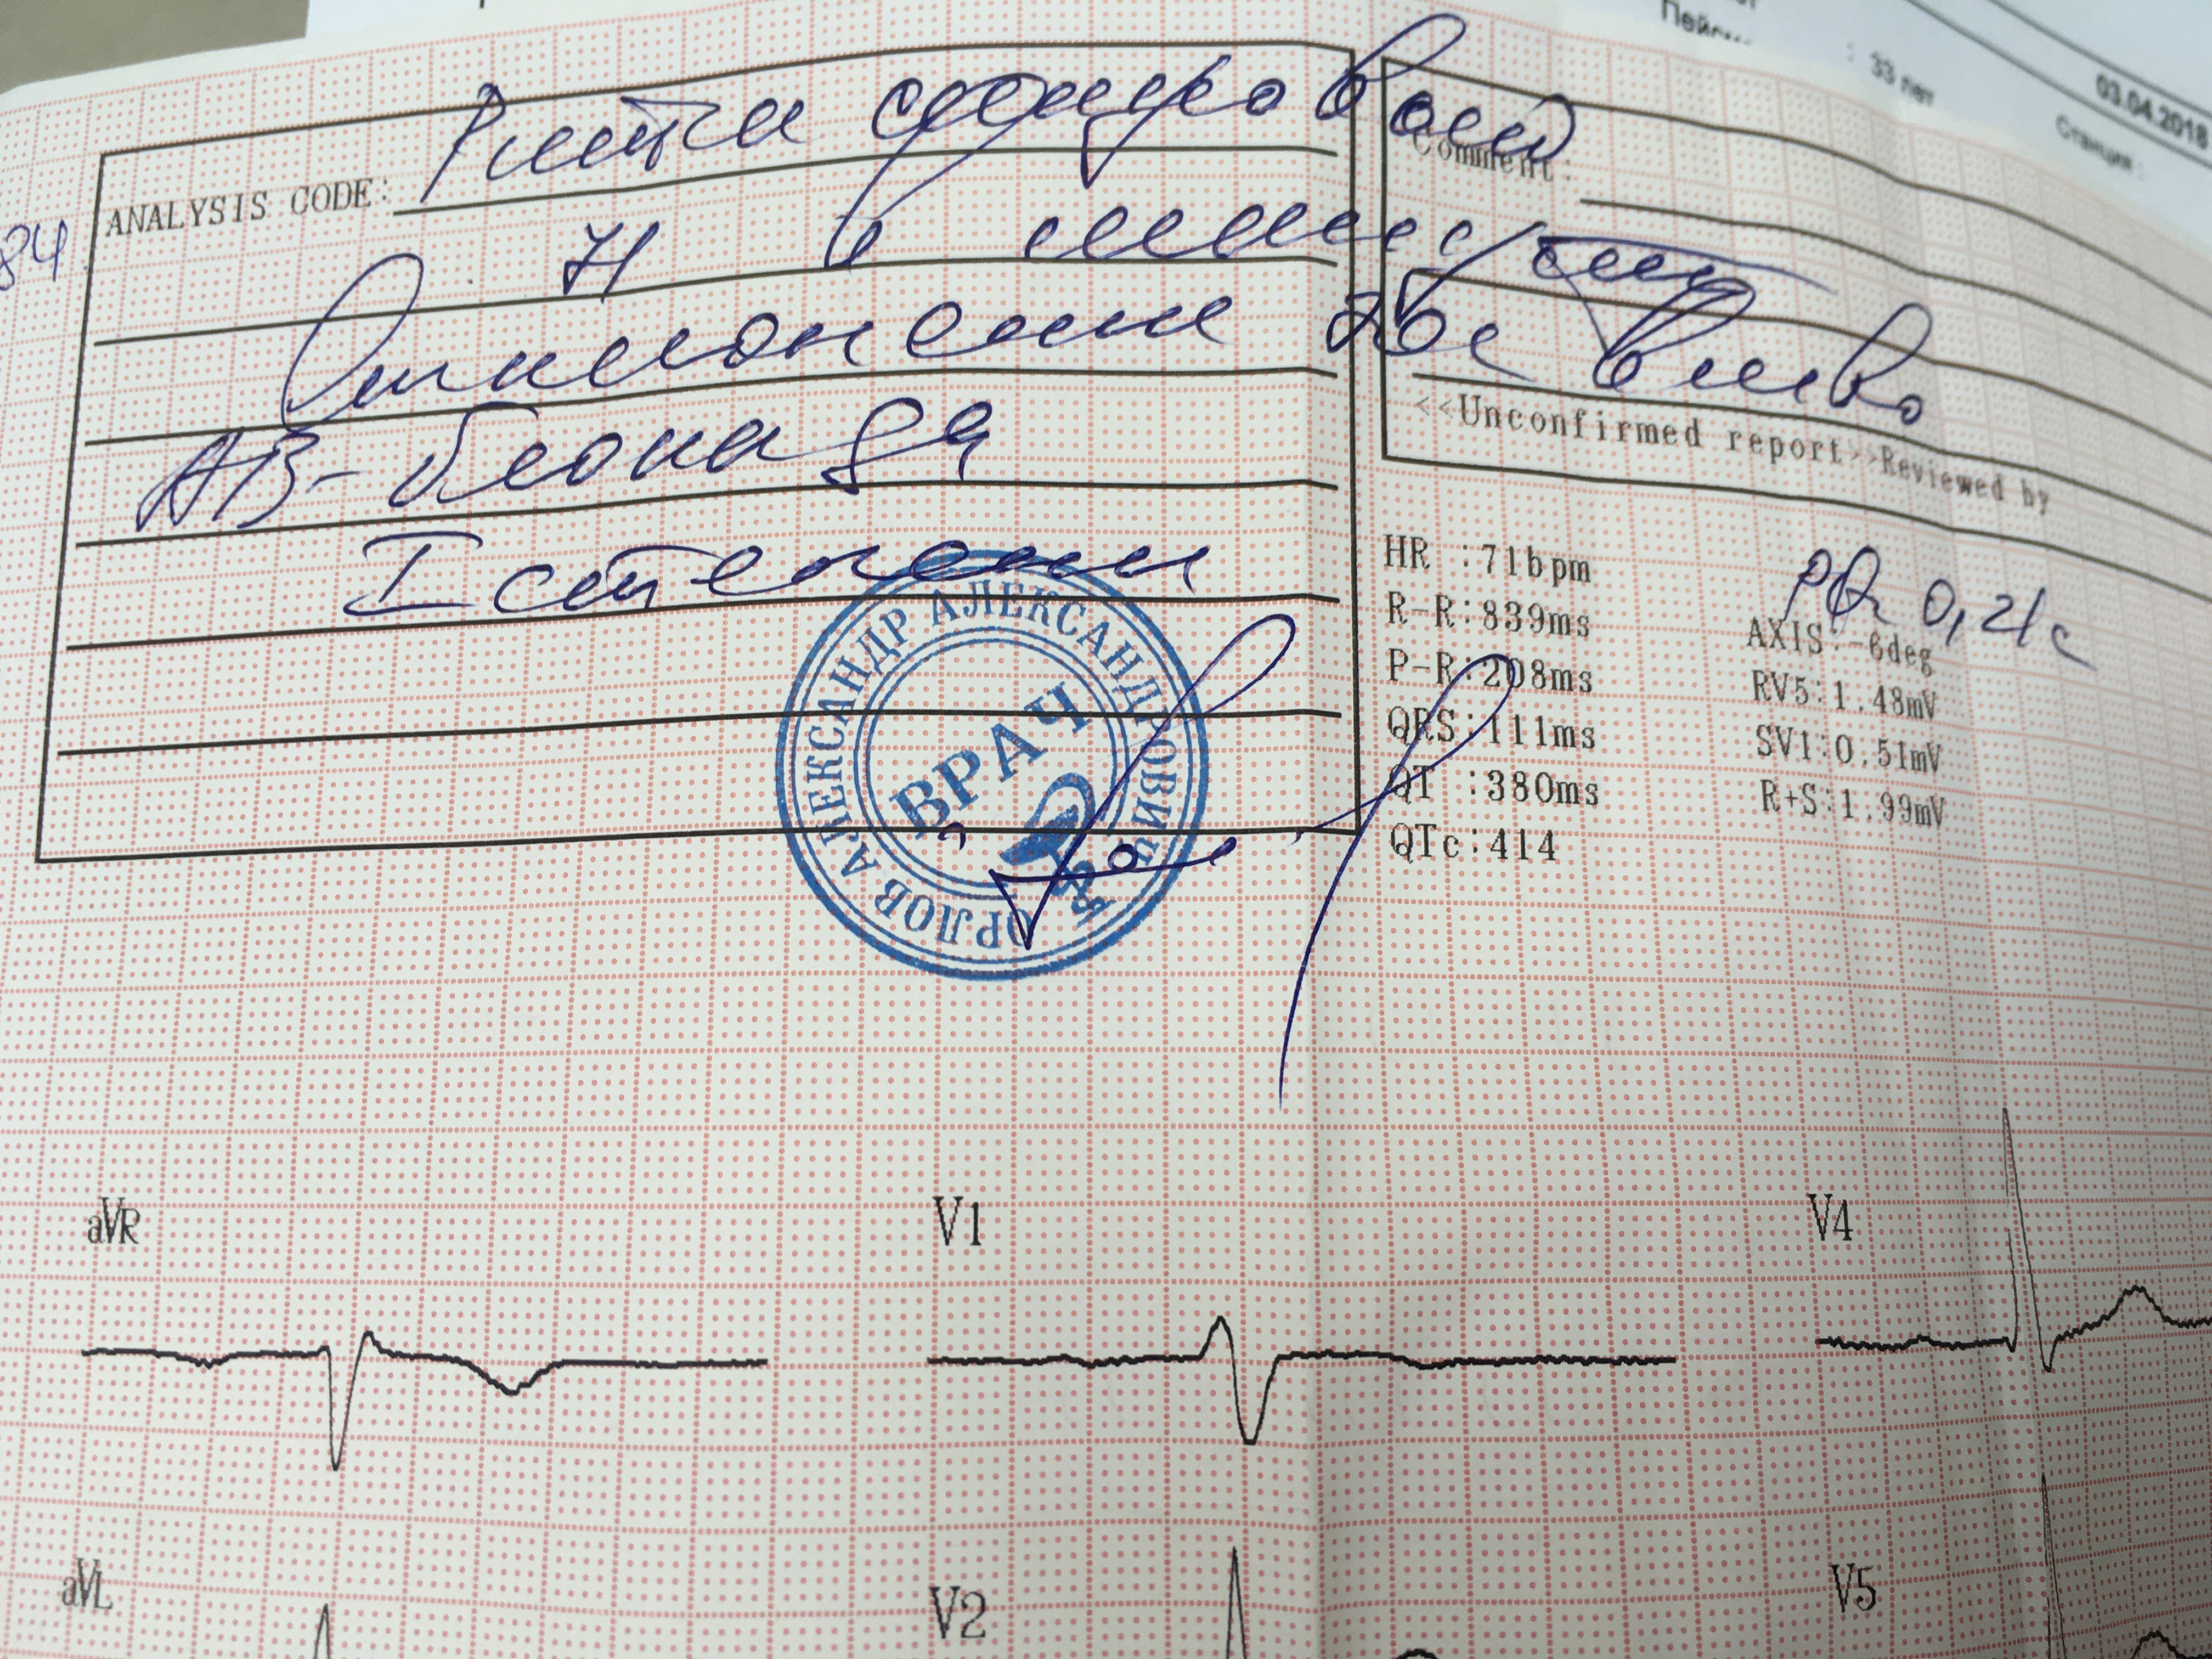 33 лет
03.04.2018
Станция :
84
ANALYSIS CODE:
Ритм синусовый
71 в минуту
Отклонение ЭОС влево
АВ-блокада
I степени
Comment :
<<Unconfirmed report>>Reviewed by
HR :71bpm
R-R:839ms
P-R:208ms
QRS:111ms
QT :380ms
QTc:414
PQ 0,21с
AXIS:-6deg
RV5:1.48mV
SV1:0.51mV
R+S:1.99mV
ОРЛОВ АЛЕКСАНДР АЛЕКСАНДРОВИЧ
ВРАЧ
aVR
V1
V4
aVL
V2
V5